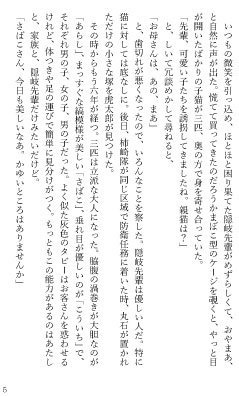 いつもの微笑を引っ込め、ほとほと困り果てた隠岐先輩がめずらしくて、おやっ、
と自然に声が出た。慌てて買ってきたのだろうかまぼこ型のケージを覗くと、やっと目
が開いたばかりの子猫が三匹、奥の方で身を寄せ合っていた。
「先輩、可愛い子たちを誘拐してきましたね。親猫は?」
と、しいて冗談めかして尋ねると、
「お母さんは、あの、まあ」
と、歯切れが悪くなったので、いろんなことを察した。隠岐先輩は優しい人だ。特に
猫に対しては底なしに。後日、柿崎隊が同じ区域で防衛任務に着いた時、丸石が置かれ
ただけの小さな塚を虎太郎が見つけた。
その時からもう六年が経つ。三匹は立派な大人になった。脇腹の渦巻きが大胆なのが
「あらし」、まっすぐな縞模様が美しい「さばこ」、垂れ目が優しいのが「こういち」で、
それぞれ男の子、女の子、男の子だった。よく似た灰色のタビーはお客さんを惑わせる
けれど、体つきや足の運びで簡単に見分けがつく。もっともこの能力があるのはあたし
と、家族と、隠岐先輩だけみたいだけど。
「さばこさん、今日も美しいなあ。かゆいところはありませんか」
5